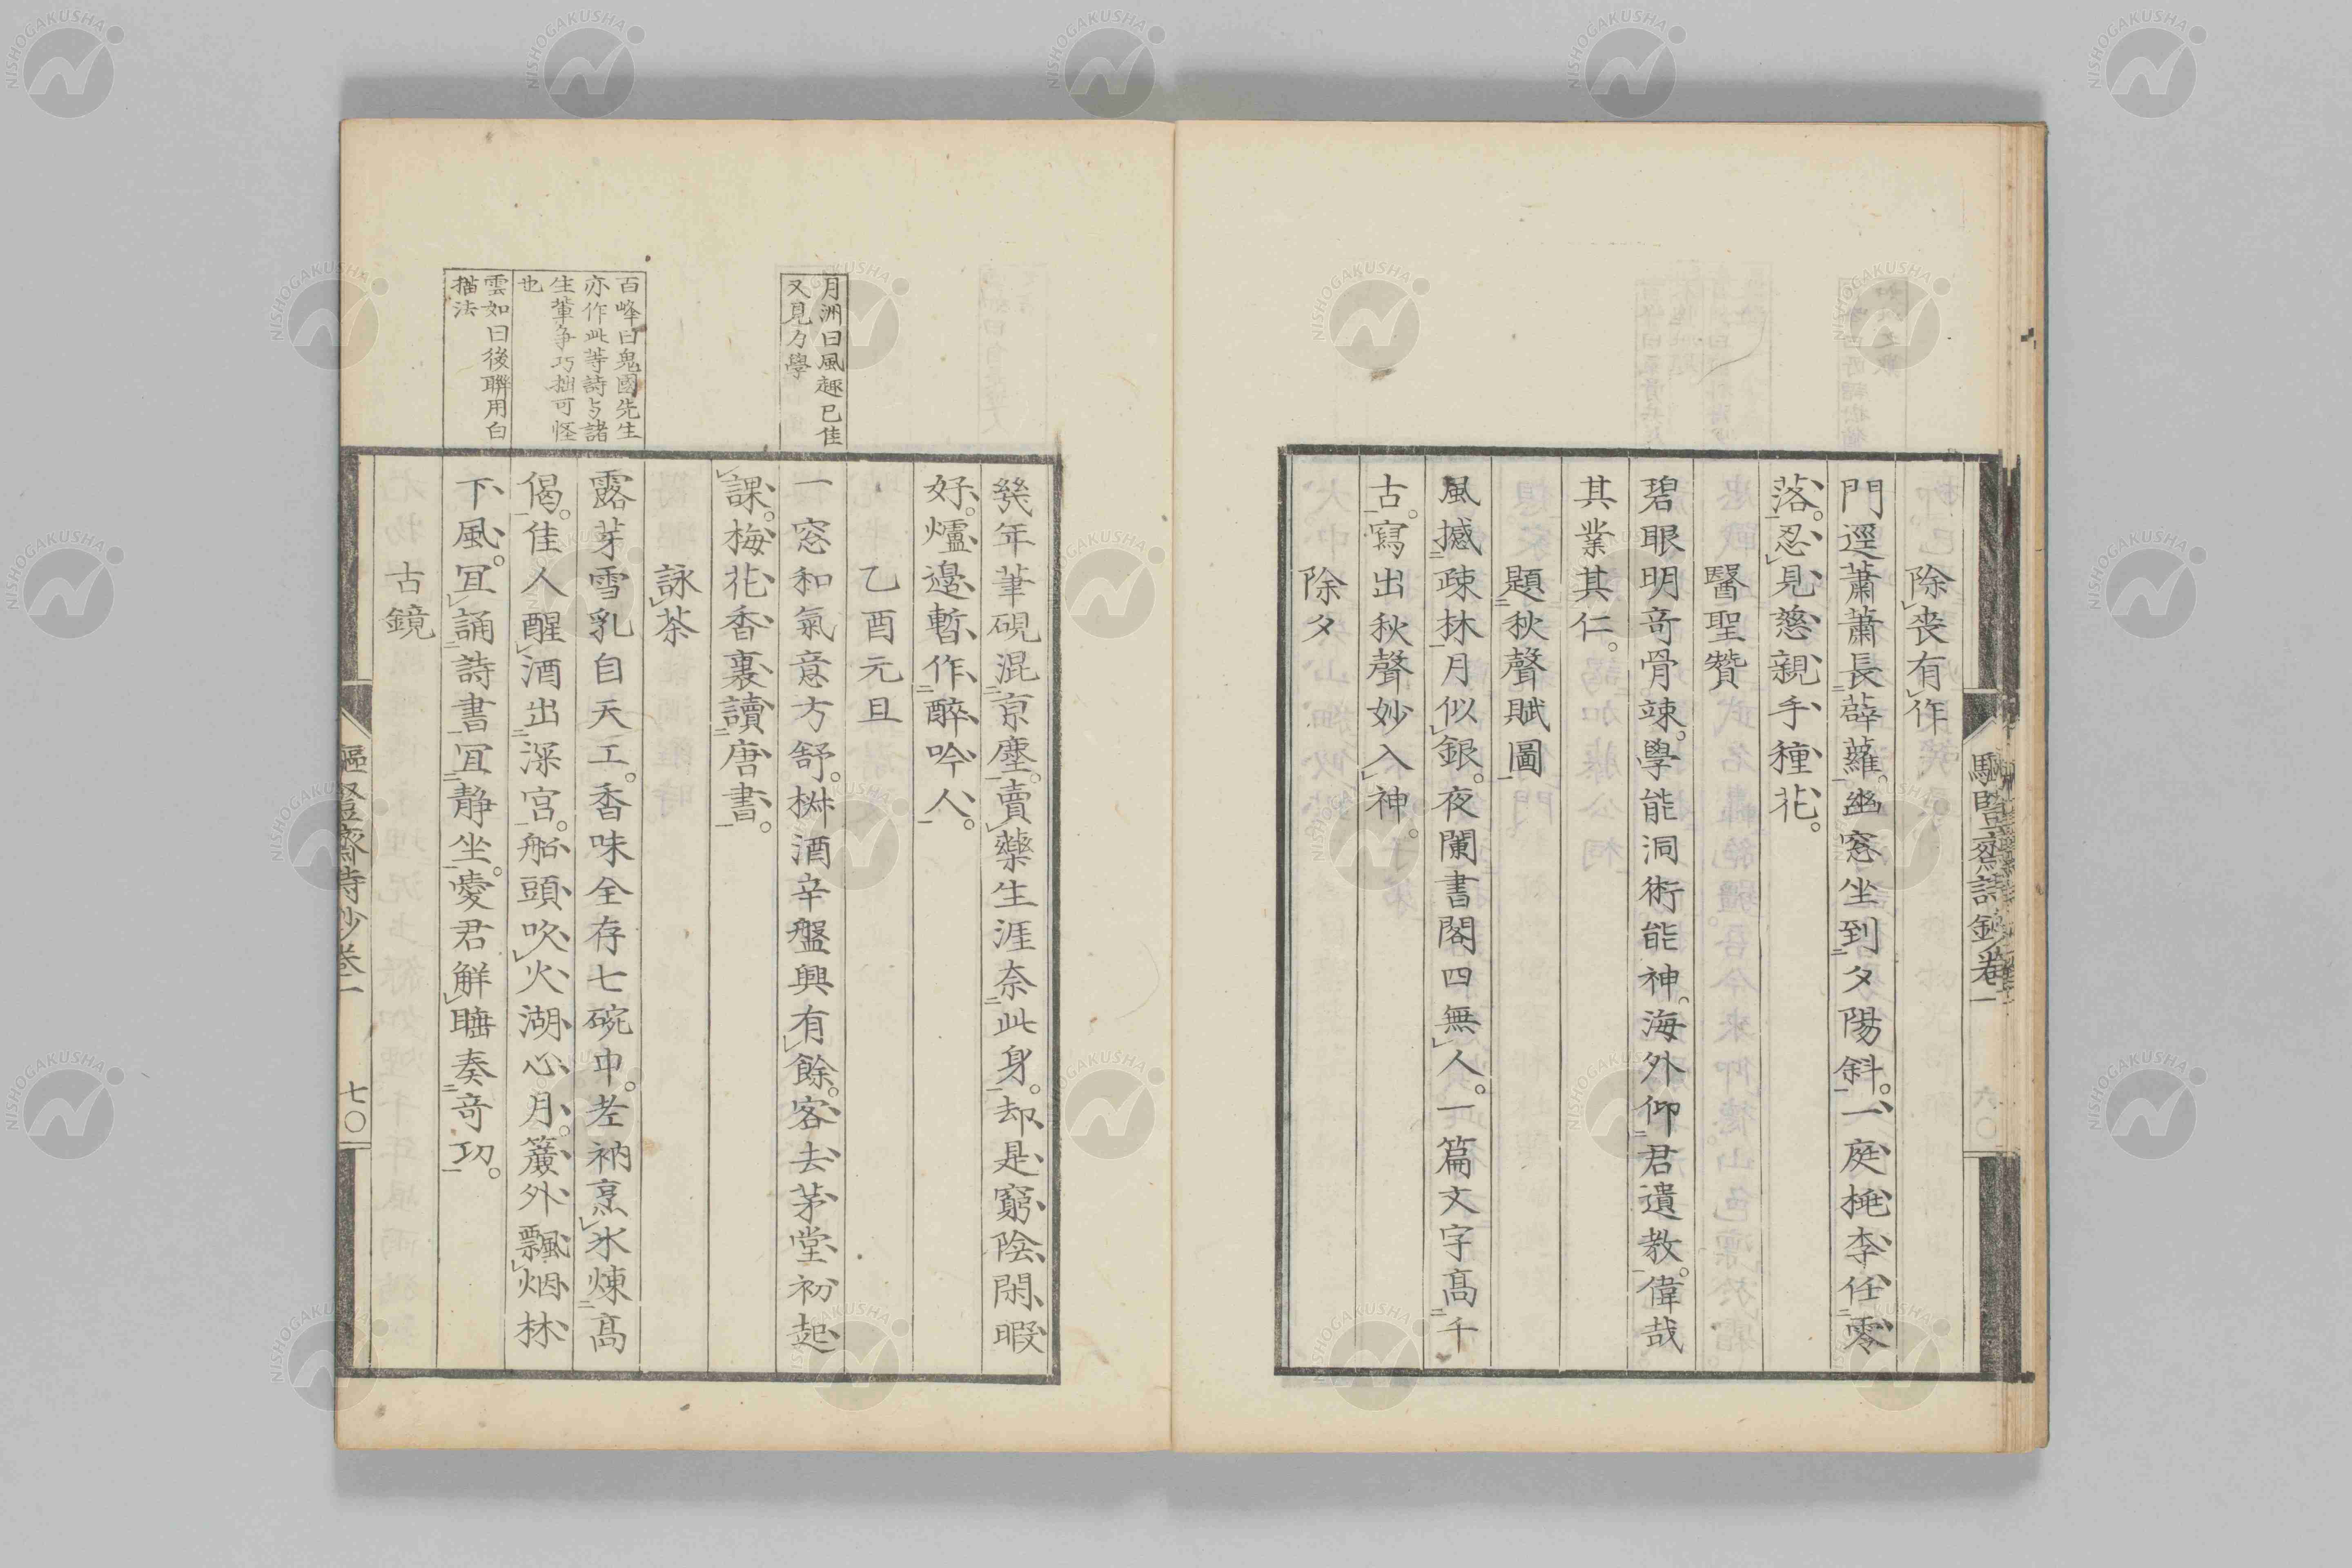 除喪有作
門逕蕭蕭長薜蘿。幽窓坐到夕陽斜。一庭桃李任零
落。忍見慈親手種花。
醫聖贊
碧眼明奇骨竦。學能洞術能神。海外仰君遺教。偉哉
其業其仁。
題秋聲賦圖
風撼疎林月似銀。夜闌書閣四無人。一篇文字高千
古。寫出秋聲妙入神。
除夕
驅豎齋詩鈔卷一
六〇
月洲曰風趣已佳
又見力學
百峰曰鬼國先生
亦作此等詩与諸
生輩爭巧拙可怪
也
雲如曰後聯用白
描法
幾年筆硯混京塵。賣藥生涯奈此身。却是窮陰閑暇
好。爐邊暫作醉吟人。
乙酉元旦
一窓和氣意方舒。椒酒辛盤興有餘。客去茅堂初起
課。梅花香裏讀唐書。
詠茶
露芽雪乳自天工。香味全存七碗中。老衲烹氷煉高
偈。佳人醒酒出深宮。船頭吹火湖心月。簾外飄烟林
下風。宜誦詩書宜靜坐。愛君解睡奏奇功。
古鏡
驅豎齋詩鈔卷一
七〇